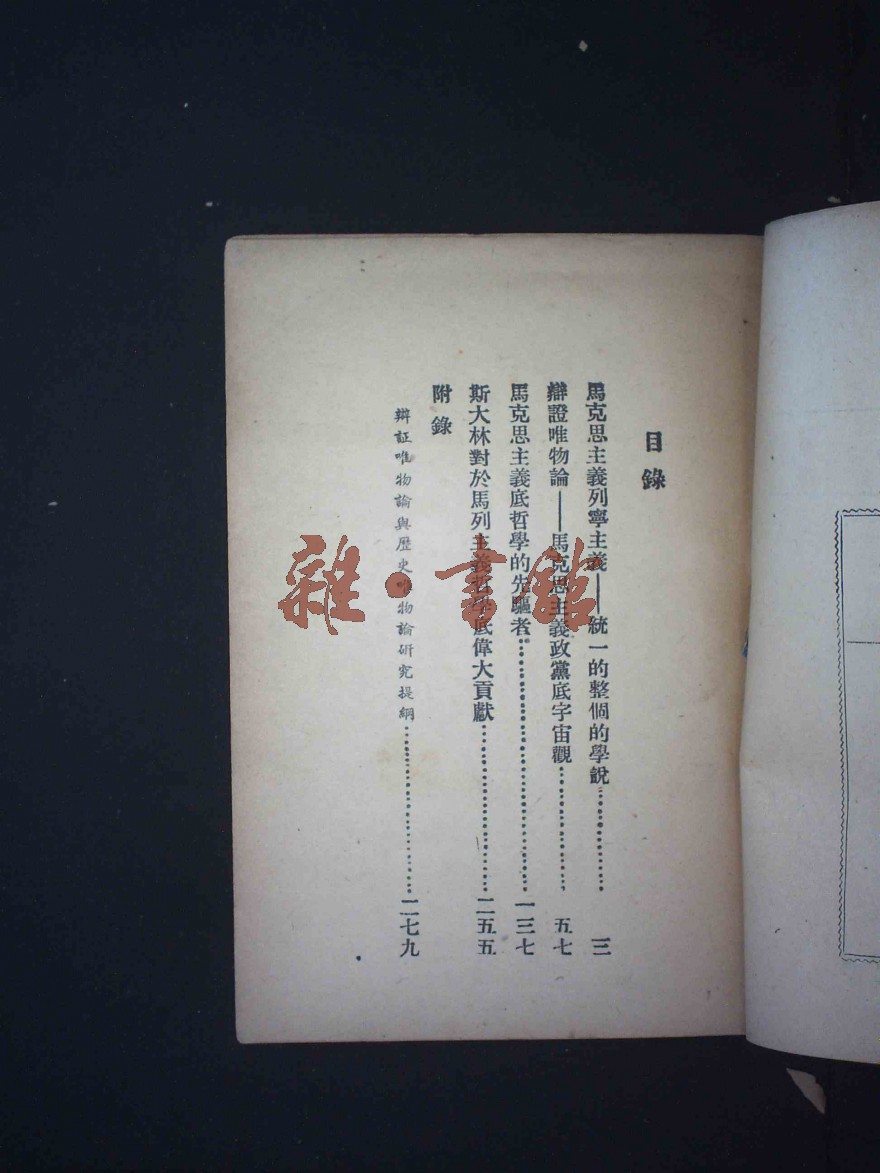 目錄
馬克思主義列寧主義——統一的整個的學說……………… 三
辯證唯物論——馬克思主義政黨底宇宙觀……………… 五七
馬克思主義底哲學的先驅者……………… 一三七
斯大林對於馬列主義哲學底偉大貢獻……………… 二五五
附錄
辯証唯物論與歷史唯物論研究提綱……………… 二七九
雜·書館